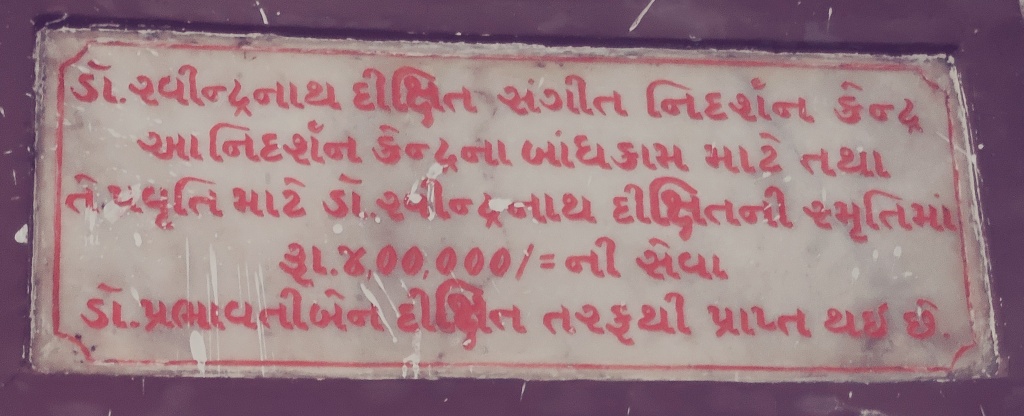 ડૉ. રવીન્દ્રનાથ દીક્ષિત સંગીત નિદર્શન કેન્દ્ર
આ નિદર્શન કેન્દ્રના બાંધકામ માટે તથા
તે પ્રવૃતિ માટે ડૉ. રવીન્દ્રનાથ દીક્ષિતની સ્મૃતિમાં
રૂા. ૪,૦૦,૦૦૦/= ની સેવા
ડૉ. પ્રભાવતીબેન દીક્ષિત તરફથી પ્રાપ્ત થઇ છે.